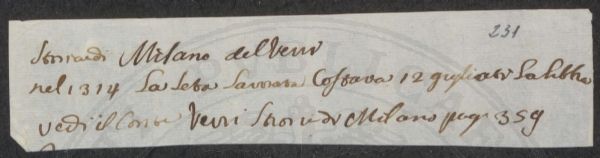 231
Storia di Milano del Verri
nel 1314 La Seta Lavorata Costava 12 gigliati La libbra
vedi il Conte Verri Storia di Milano pag. 359